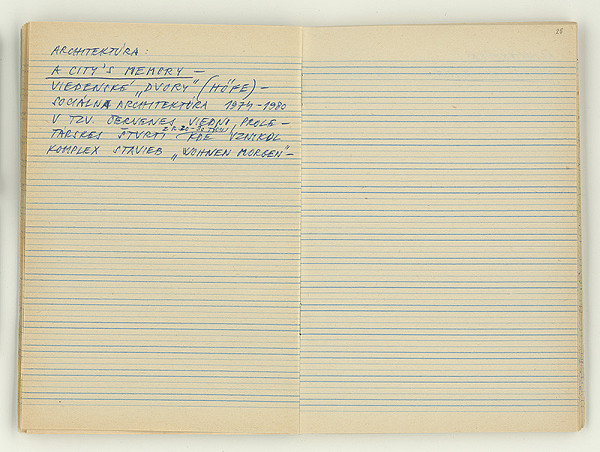 28
ARCHITEKTÚRA :
A CITY'S MEMORY –
VIEDENSKÉ „DVORY" (HÖFE) –
SOCIÁLNA ARCHITEKTÚRA 1974–1980
V TZV. ČERVENEJ VIEDNI, PROLE-
TÁRSKEJ ŠTVRTI KDE VZNIKOL
KOMPLEX STAVIEB „WOHNEN MORGEN" –